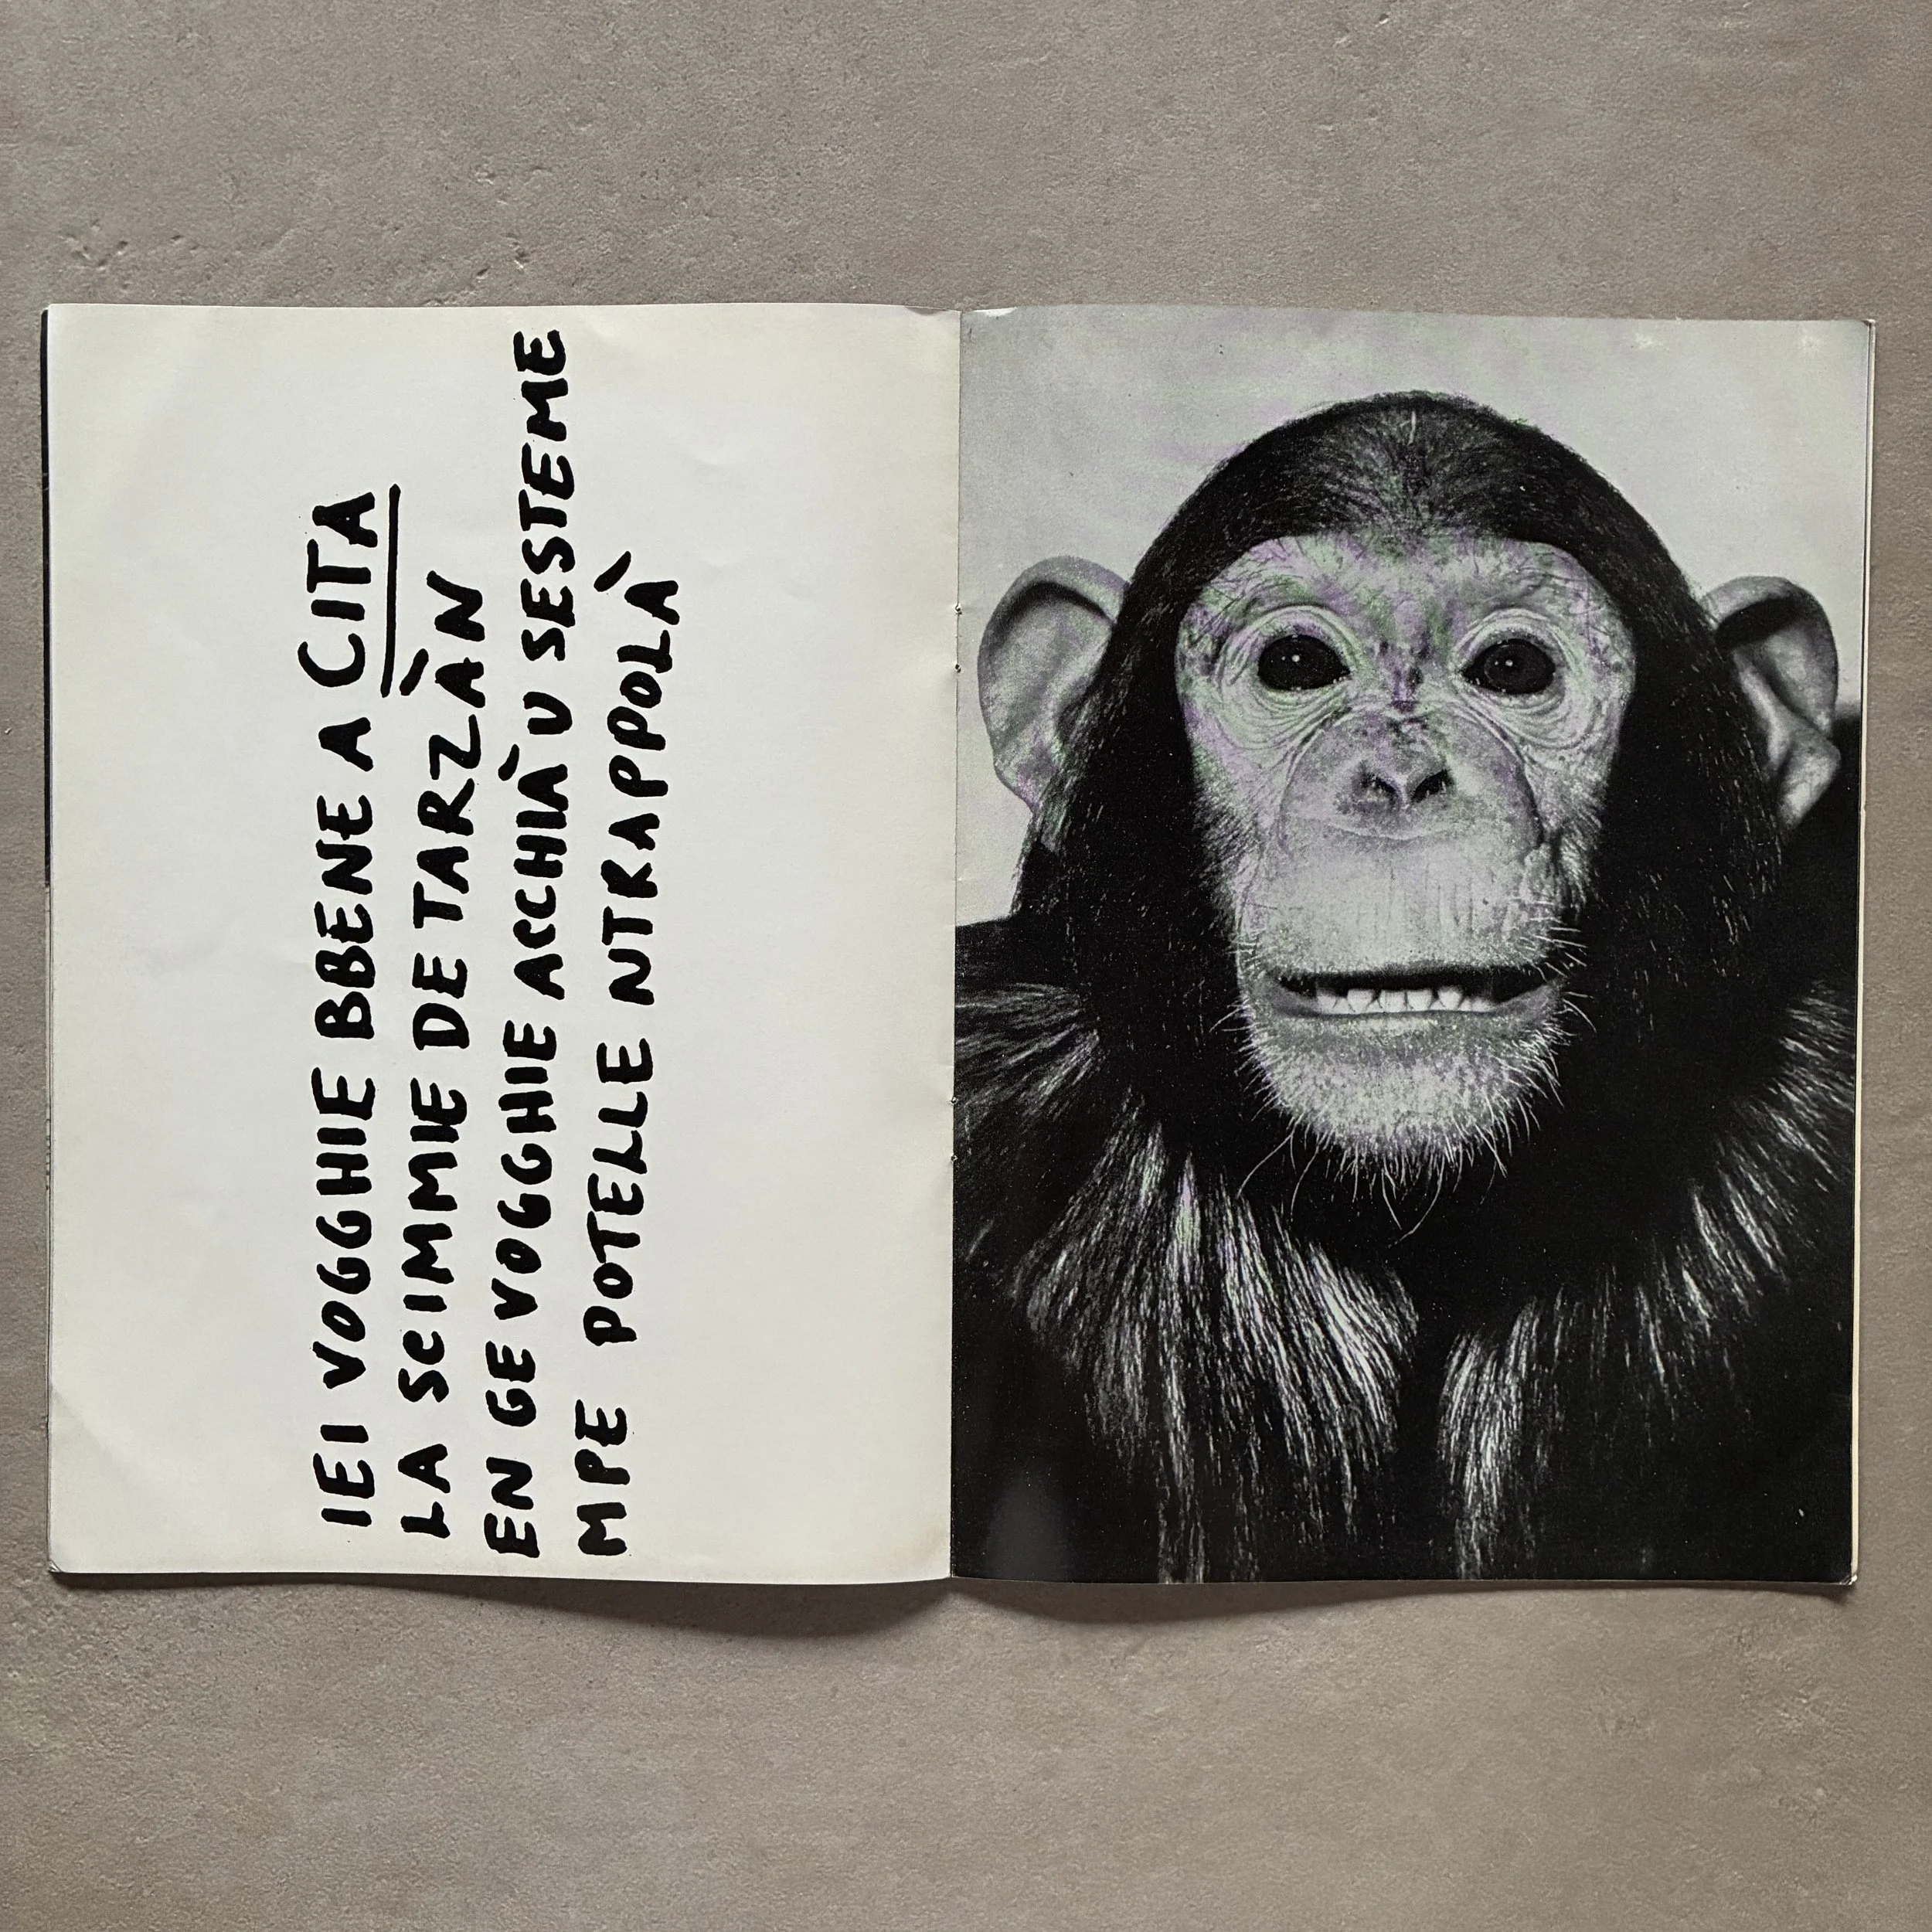 IEI VOGGHIE BBENE A CITA
LA SCIMMIE DE TARZÀN
EN GE VOGGHIE ACCHIÀ U SESTEME
MPE POTELLE NTRAPPOLÀ